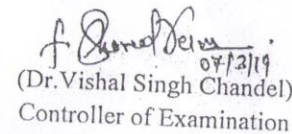 07/3/19
(Dr.Vishal Singh Chandel)
Controller of Examination